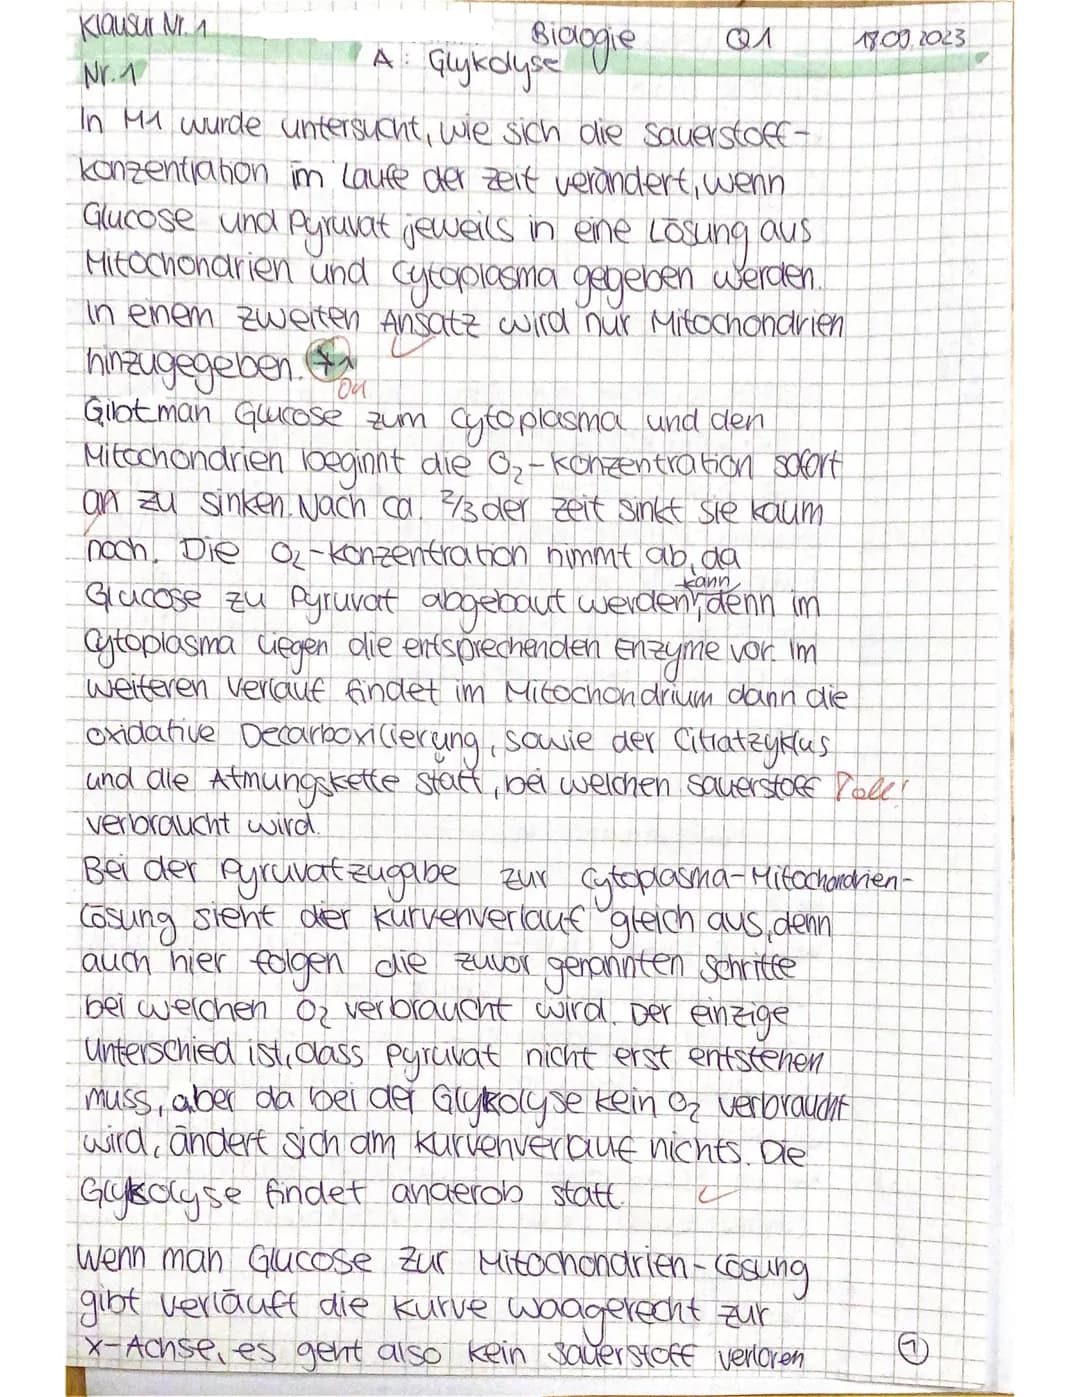 Klausur Nr. 1 Biologie Q1 18.09.2023
A: Glykolyse
Nr. 1
In M1 wurde untersucht, wie sich die Sauerstoff-
konzentration im Laufe der Zeit verändert, wenn
Glucose und Pyruvat jeweils in eine Lösung aus
Mitochondrien und Cytoplasma gegeben werden.
In einem zweiten Ansatz wird nur Mitochondrien
hinzugegeben. *1
Gibt man Glucose zum Cytoplasma und den
Mitochondrien beginnt die O₂-Konzentration sofort
an zu sinken. Nach ca. 2/3 der Zeit sinkt sie kaum
noch. Die O₂-Konzentration nimmt ab, da
Glucose zu Pyruvat abgebaut werden kann, denn im
Cytoplasma liegen die entsprechenden Enzyme vor. Im
weiteren Verlauf findet im Mitochondrium dann die
oxidative Decarboxilierung, sowie der Citratzyklus
und die Atmungskette statt, bei welchen Sauerstoff Toll!
verbraucht wird.
Bei der Pyruvatzugabe zur Cytoplasma-Mitochondrien-
Lösung sieht der Kurvenverlauf gleich aus, denn
auch hier folgen die zuvor genannten Schritte
bei welchen O₂ verbraucht wird. Der einzige
Unterschied ist, dass Pyruvat nicht erst entstehen
muss, aber da bei der Glykolyse kein O₂ verbraucht
wird, ändert sich am Kurvenverlauf nichts. Die
Glykolyse findet anaerob statt.
Wenn man Glucose zur Mitochondrien-Lösung
gibt verläuft die Kurve waagerecht zur
x-Achse, es geht also kein Sauerstoff verloren
1